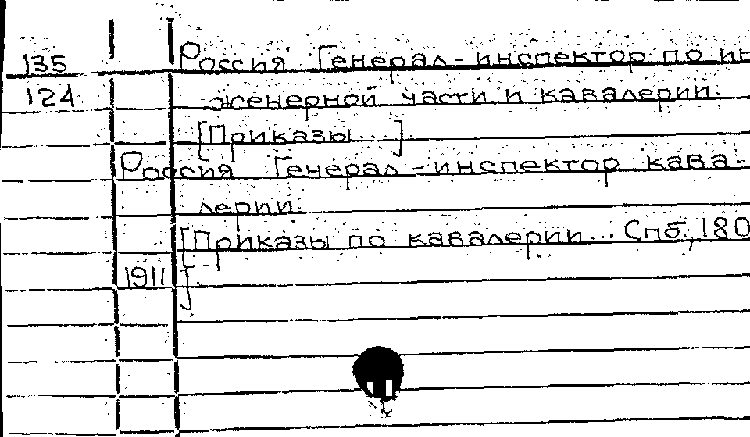 135 Россия Генерал-инспектор по ин
124 женерной части и кавалерии.
[Приказы...]
Россия Генерал-инспектор кава-
лерии.
[Приказы по кавалерии... Спб, 180
1911 ]